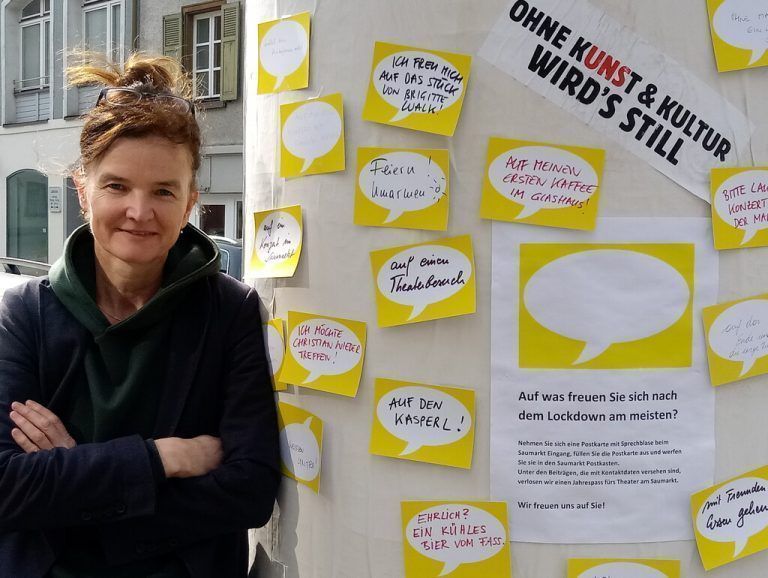 OHNE KUNST & KULTUR
WIRD'S STILL
ICH FREU MICH
AUF DAS STÜCK
VON BRIGITTE
WALK!
Feiern!
Umarmen!
AUF MEINEN
ERSTEN KAFFEE
IM GLASHAUS!
auf ein
Konzert am
Saumarkt
auf einen
Theaterbesuch
ICH MÖCHTE
CHRISTIAN WIEDER
TREFFEN!
AUF DEN
KASPERL!
EHRLICH?
EIN KÜHLES
BIER VOM FASS.
BITTE
KONZERT
DER
auf das
Ende
mit Freunden
Essen gehen
Auf was freuen Sie sich nach
dem Lockdown am meisten?
Nehmen Sie sich eine Postkarte mit Sprechblase beim
Saumarkt Eingang, füllen Sie die Postkarte aus und werfen
Sie sie in den Saumarkt Postkasten.
Unter den Beiträgen, die mit Kontaktdaten versehen sind,
verlosen wir einen Jahrespass fürs Theater am Saumarkt.
Wir freuen uns auf Sie!